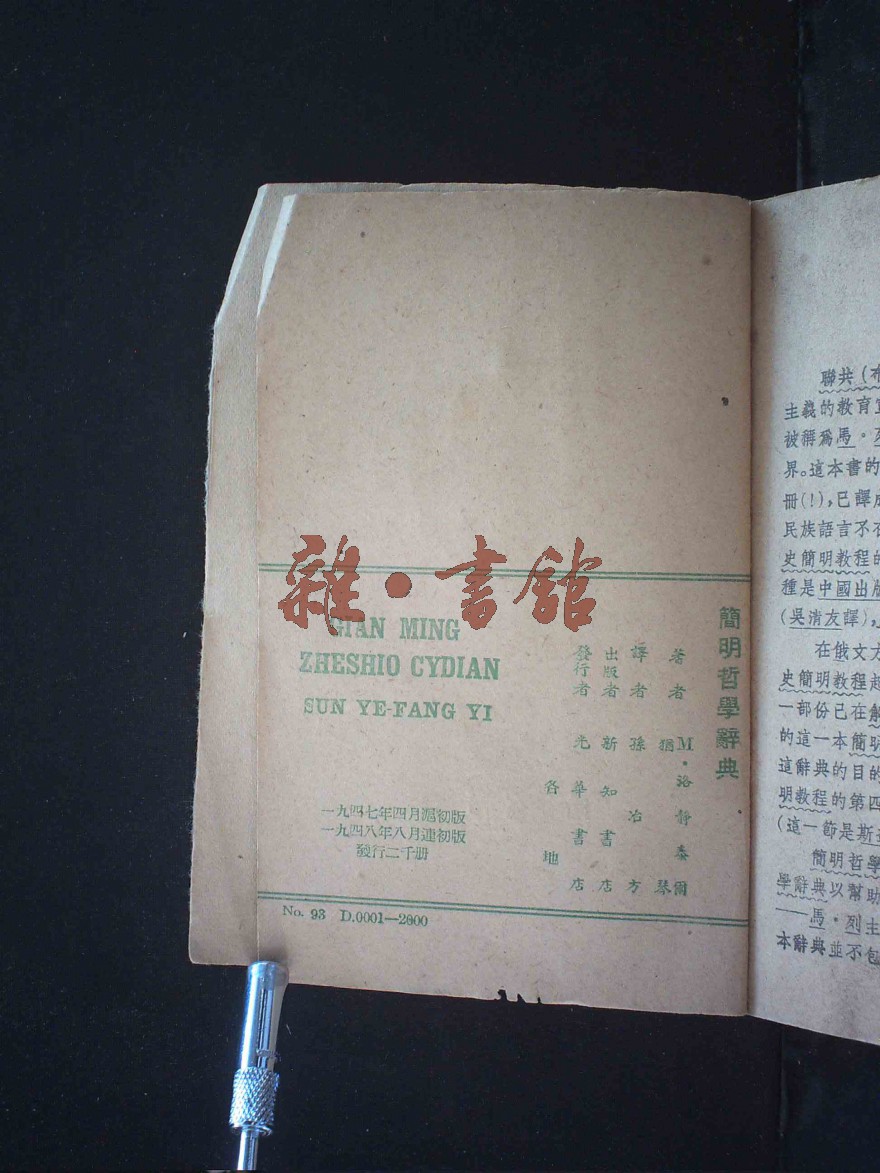 雜·書館
GIAN MING
ZHESHIO CYDIAN
SUN YE-FANG YI
簡明哲學辭典
著者 M·洛靜泰爾
猶琴
譯者 孫冶方
出版者 新知書店
發行者 光華書店
各地
一九四七年四月滬初版
一九四八年八月連初版
發行二千册
No. 93 D.0001—2000
聯共(布
主義的教育
被稱爲馬·列
界。這本書的
冊(!),已譯成
民族語言不
史簡明教程的
種是中國出版
(吳清友譯),
在俄文方
史簡明教程
一部份已在解
的這一本簡明
這辭典的目的
明教程的第四
(這一節是斯
簡明哲學
學辭典以幫助
——馬·列主
本辭典並不包